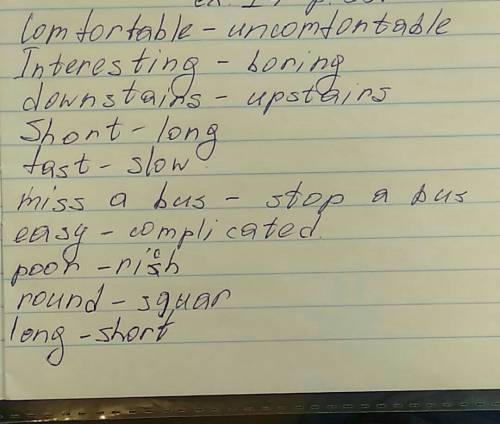 ex. 1, p. 
Comfortable - uncomfortable
Interesting - boring
downstairs - upstairs
Short - long
fast - slow
miss a bus - stop a bus
easy - complicated.
poor - rich
round - squar
long - short